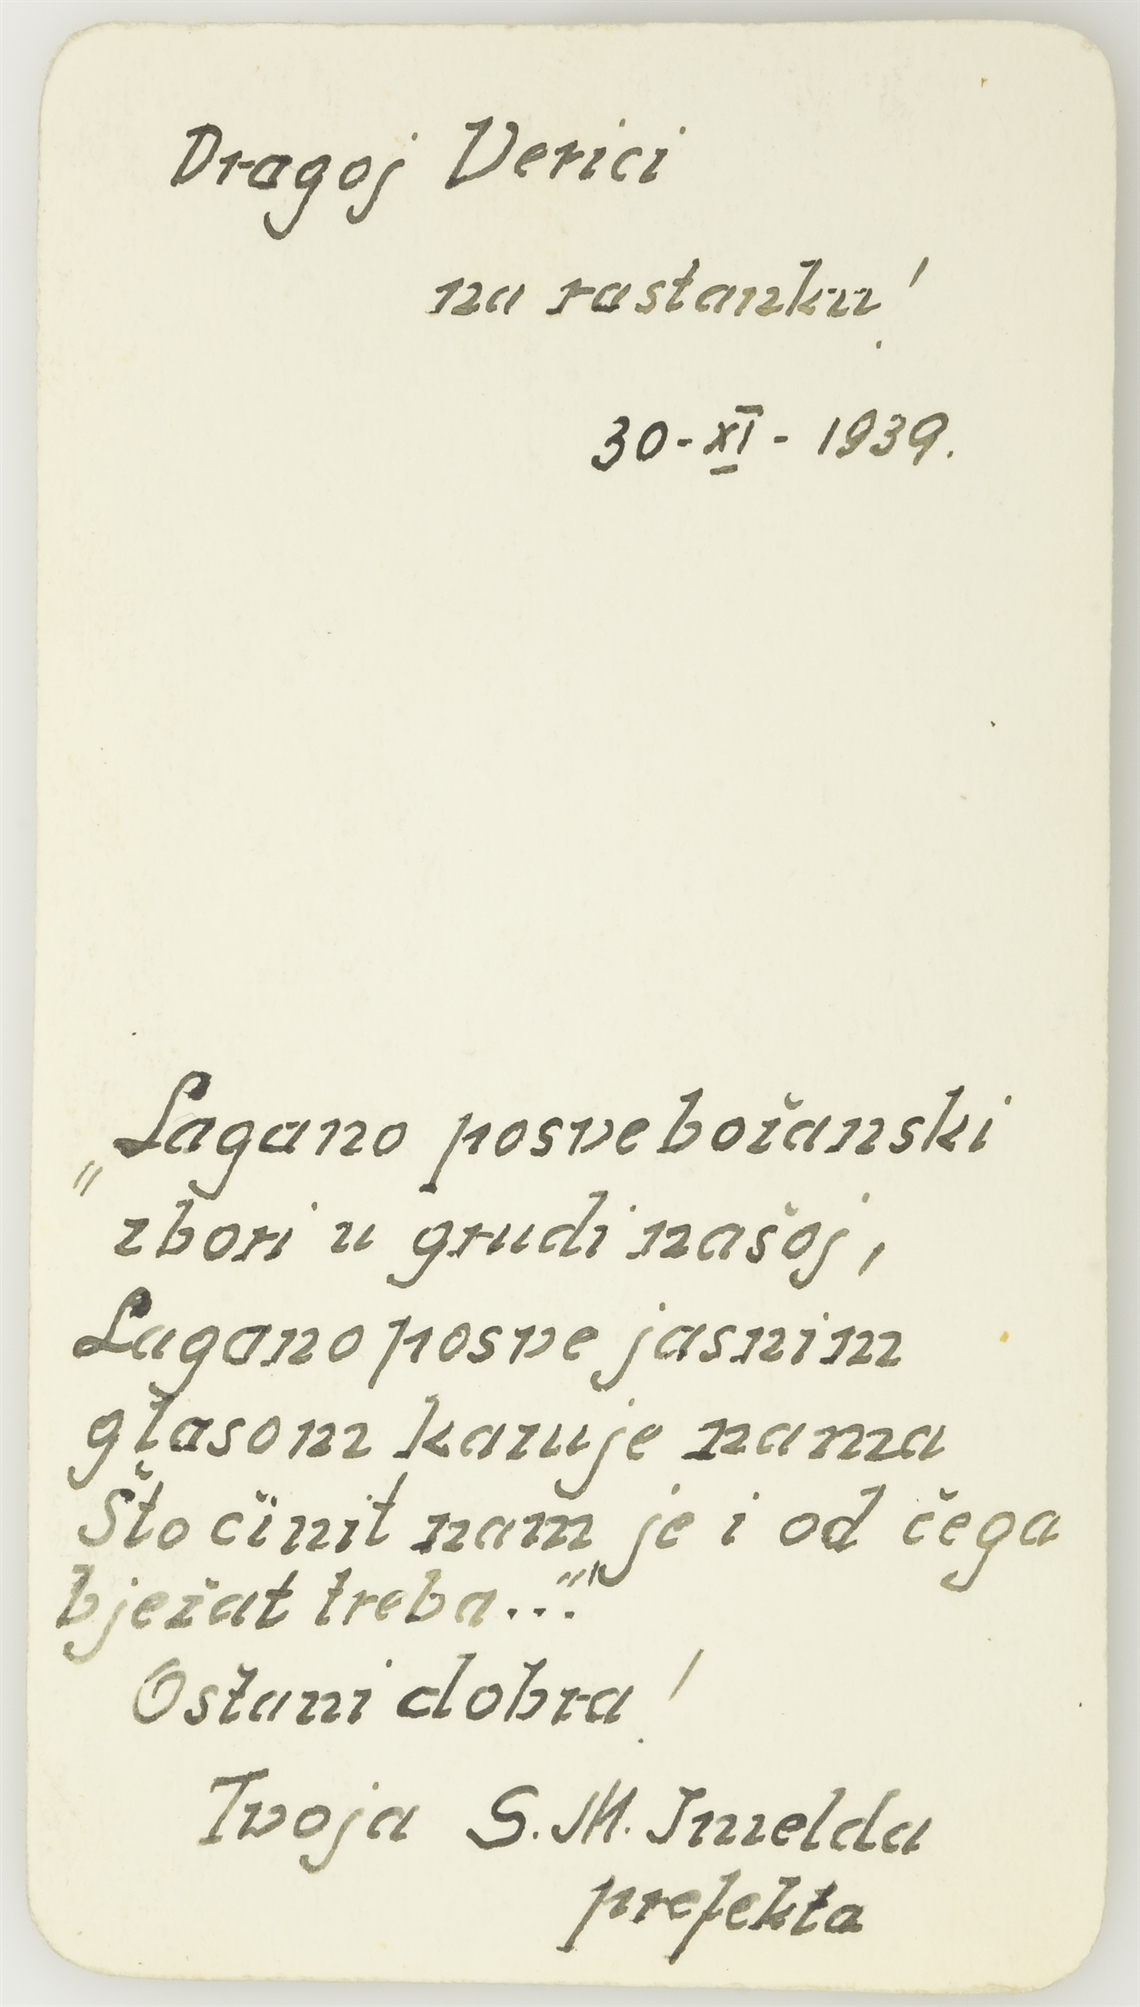 Dragoj Verici
na rastanku!
30-XI-1939.
„Lagano posve božanski
zbori u grudi našoj,
Lagano posve jasnim
glasom kazuje nama
Što činit nam je i od čega
bježat treba..."
Ostani dobra!
Tvoja S. M. Imelda
prefekta